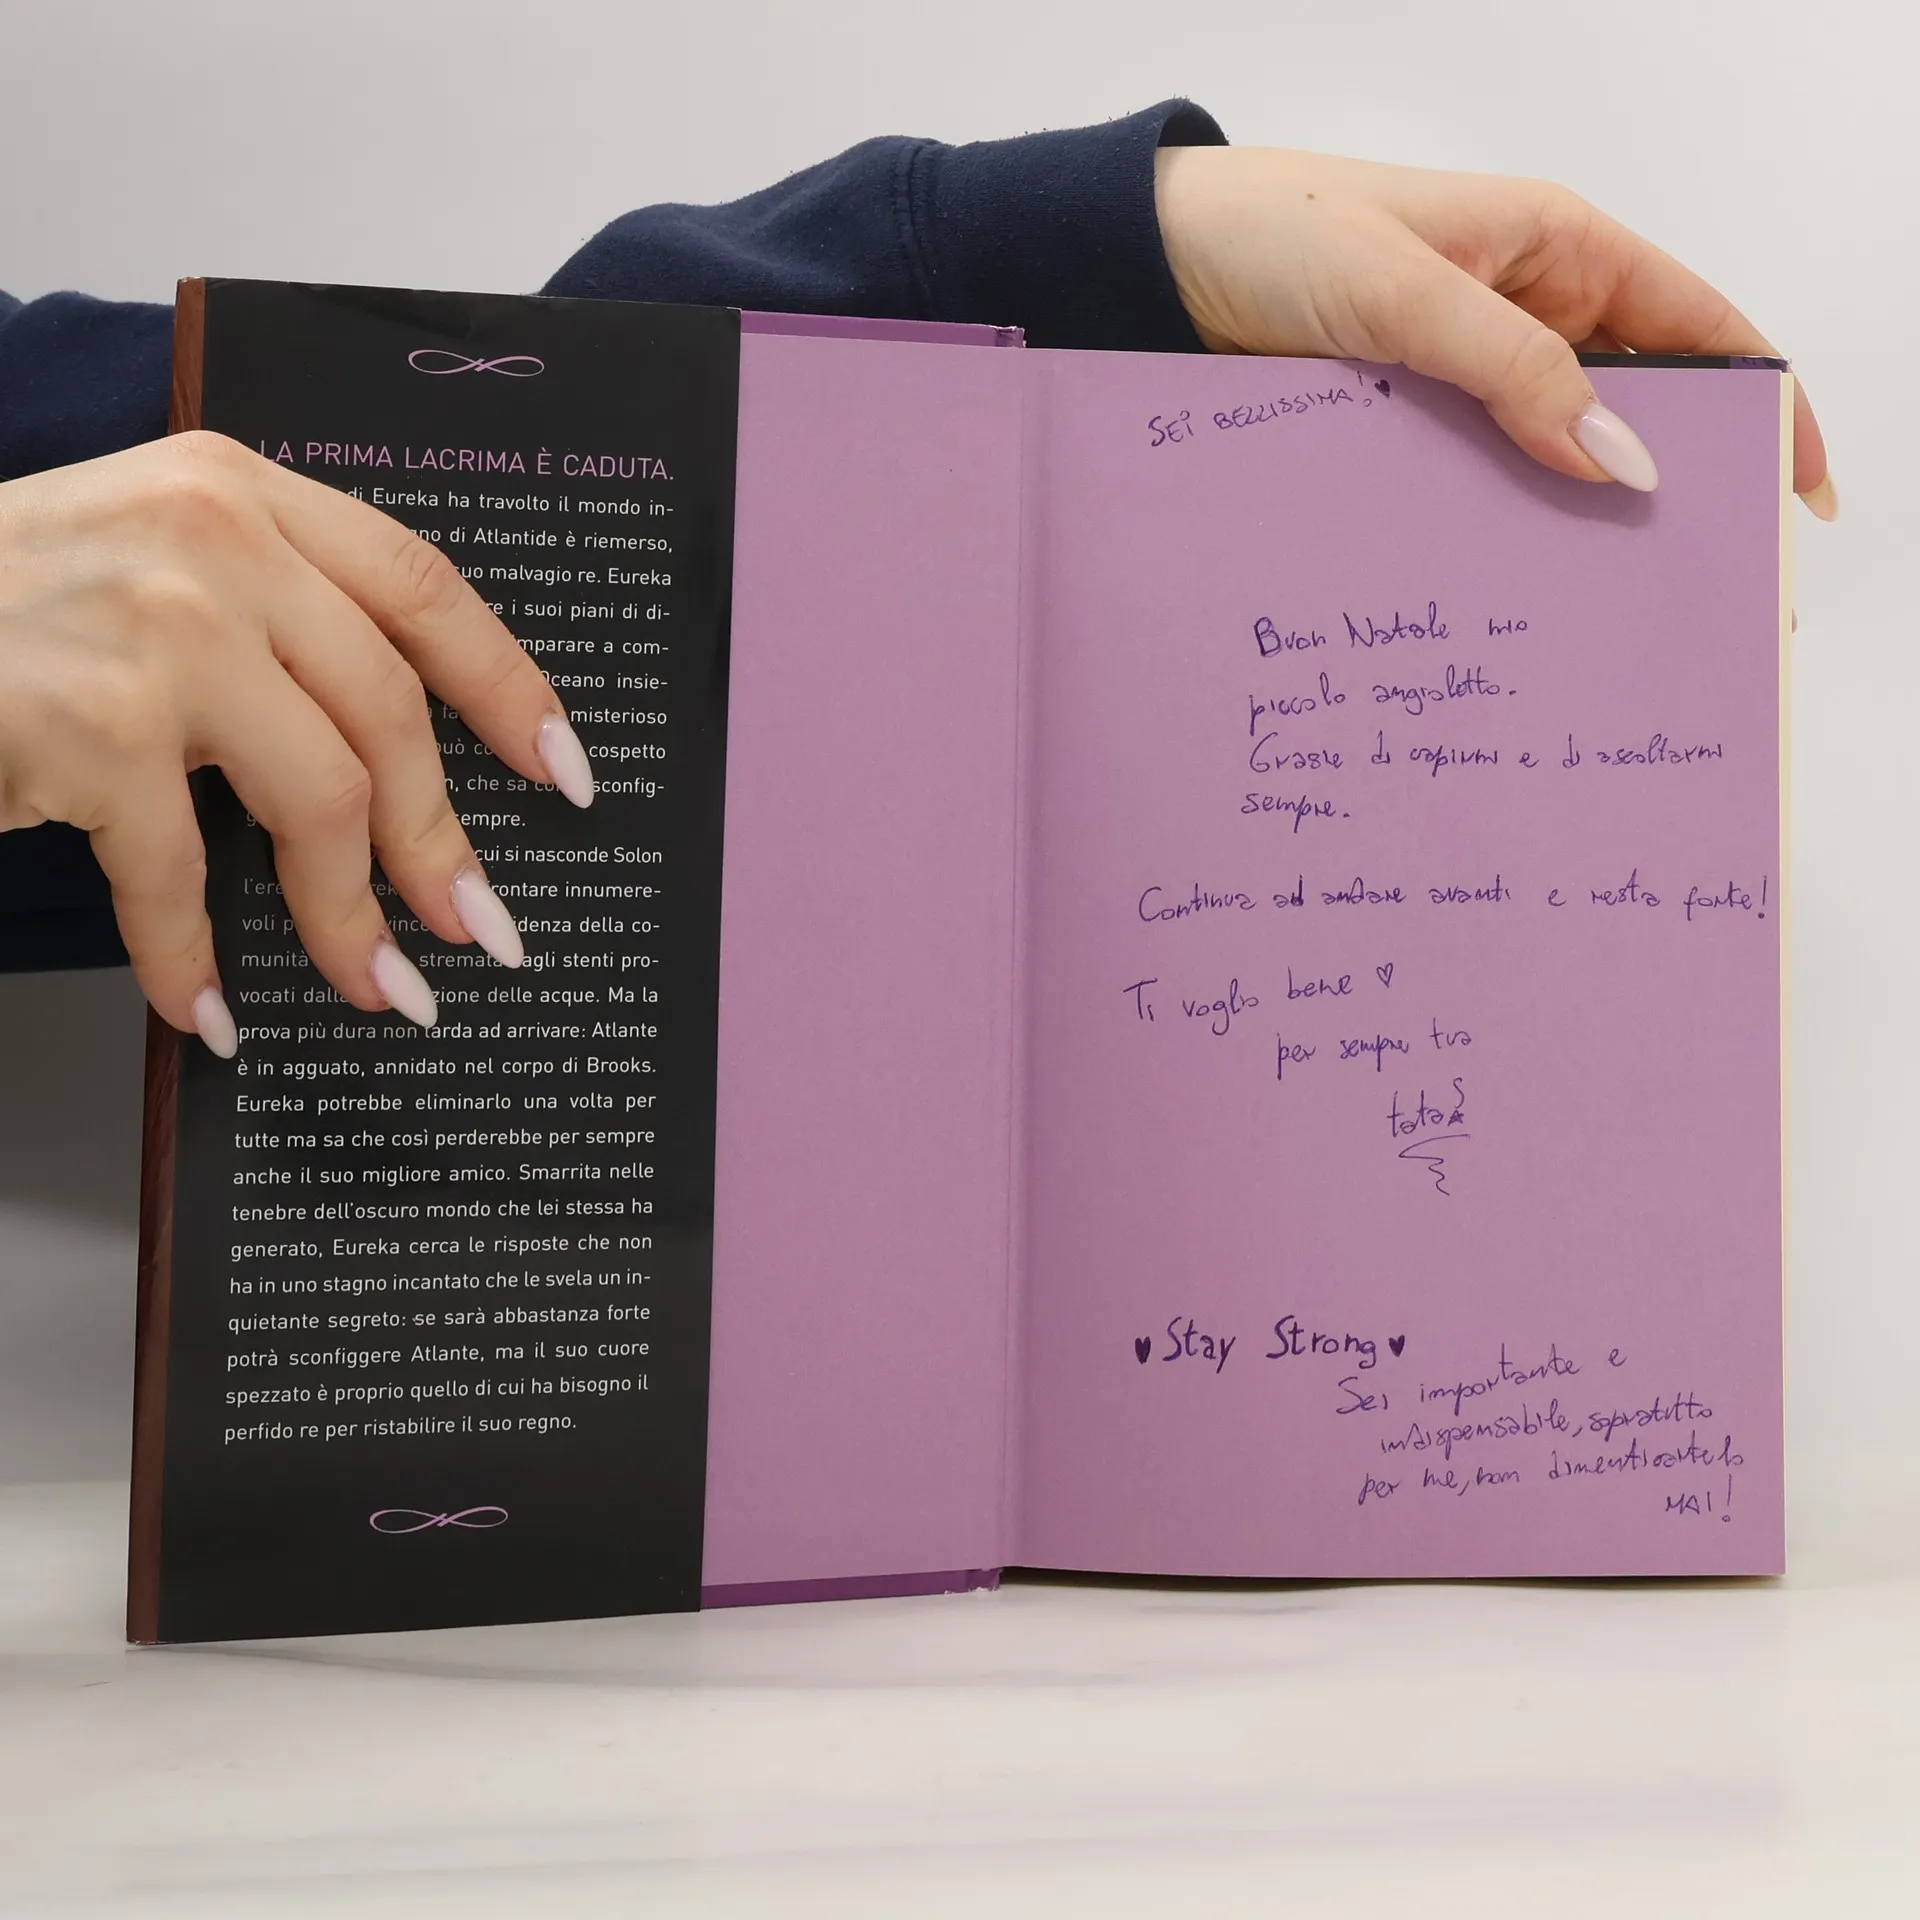 LA PRIMA LACRIMA È CADUTA.
di Eureka ha travolto il mondo in-
di Atlantide è riemerso,
suo malvagio re. Eureka
i suoi piani di di-
imparare a com-
Oceano insie-
misterioso
cospetto
che sa sconfig-
sempre.
cui si nasconde Solon
innumere-
voli della co-
munità stremata agli stenti pro-
vocati delle acque. Ma la
prova più dura non tarda ad arrivare: Atlante
è in agguato, annidato nel corpo di Brooks.
Eureka potrebbe eliminarlo una volta per
tutte ma sa che così perderebbe per sempre
anche il suo migliore amico. Smarrita nelle
tenebre dell'oscuro mondo che lei stessa ha
generato, Eureka cerca le risposte che non
ha in uno stagno incantato che le svela un in-
quietante segreto: se sarà abbastanza forte
potrà sconfiggere Atlante, ma il suo cuore
spezzato è proprio quello di cui ha bisogno il
perfido re per ristabilire il suo regno.
SEI BELLISSIMA! ♥
Buon Natale mio
piccolo angioletto.
Grazie di capirmi e di ascoltarmi
sempre.
Continua ad andare avanti e resta forte!
Ti voglio bene ♡
per sempre tua
tata
♥ Stay Strong ♥
Sei importante e
indispensabile, sopratutto
per me, non dimenticartelo
MAI!